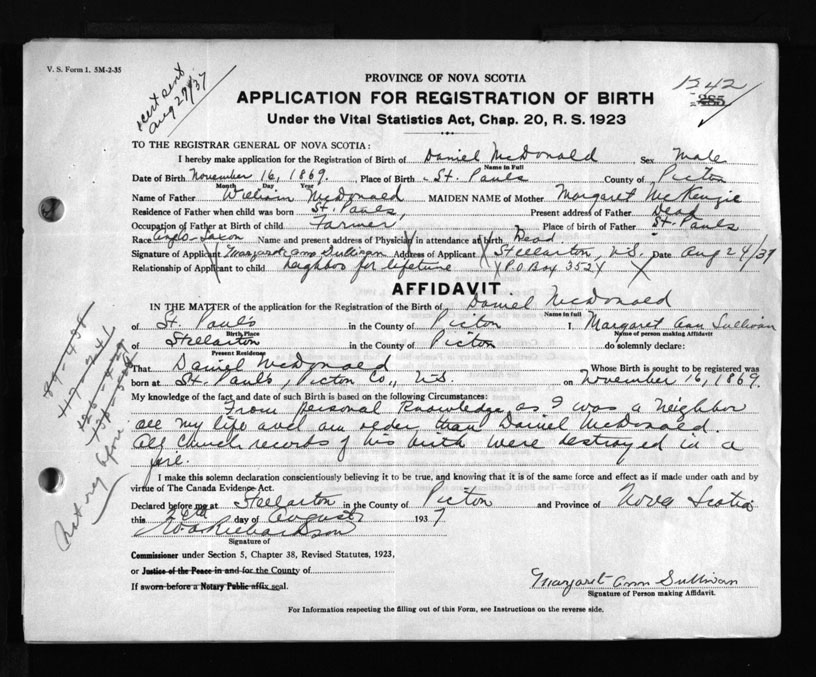 V. S. Form 1. 5M-2-35
cert sent
Aug 27/37
PROVINCE OF NOVA SCOTIA
1242
285
APPLICATION FOR REGISTRATION OF BIRTH
Under the Vital Statistics Act, Chap. 20, R. S. 1923
TO THE REGISTRAR GENERAL OF NOVA SCOTIA:
I hereby make application for the Registration of Birth of Daniel McDonald Sex Male
Name in Full
Date of Birth November 16, 1869. Place of Birth St. Pauls County of Picton
Month Day Year
Name of Father William McDonald MAIDEN NAME of Mother Margaret McKenzie
Residence of Father when child was born St. Pauls, Present address of Father Dead
Occupation of Father at Birth of child Farmer Place of birth of Father St. Pauls
Race Anglo-Saxon Name and present address of Physician in attendance at birth. Dead.
Signature of Applicant Margaret Ann Sullivan Address of Applicant Stellarton, N.S. Date Aug 24/37
Relationship of Applicant to child neighbor for lifetime P.O Box 352
AFFIDAVIT
IN THE MATTER of the application for the Registration of the Birth of Daniel McDonald
Name in full
of St. Pauls in the County of Picton I. Margaret Ann Sullivan
Birth Place Name of person making Affidavit
of Stellarton in the County of Picton do solemnly declare:
Present Residence
That Daniel McDonald Whose Birth is sought to be registered was
born at St. Pauls, Picton Co., N.S. on November 16, 1869.
My knowledge of the fact and date of such Birth is based on the following Circumstances:
From personal knowledge as I was a neighbor
all my life and am older than Daniel McDonald.
All Church records of his birth were destroyed in a
fire.
I make this solemn declaration conscientiously believing it to be true, and knowing that it is of the same force and effect as if made under oath and by
virtue of The Canada Evidence Act.
Declared before me at Stellarton in the County of Picton and Province of Nova Scotia
this day of August 1937
Signature of
Commissioner under Section 5, Chapter 38, Revised Statutes, 1923,
or Justice of the Peace in and for the County of
If sworn before a Notary Public affix seal.
Margaret Ann Sullivan
Signature of Person making Affidavit.
For Information respecting the filling out of this Form, see Instructions on the reverse side.
Not reg before